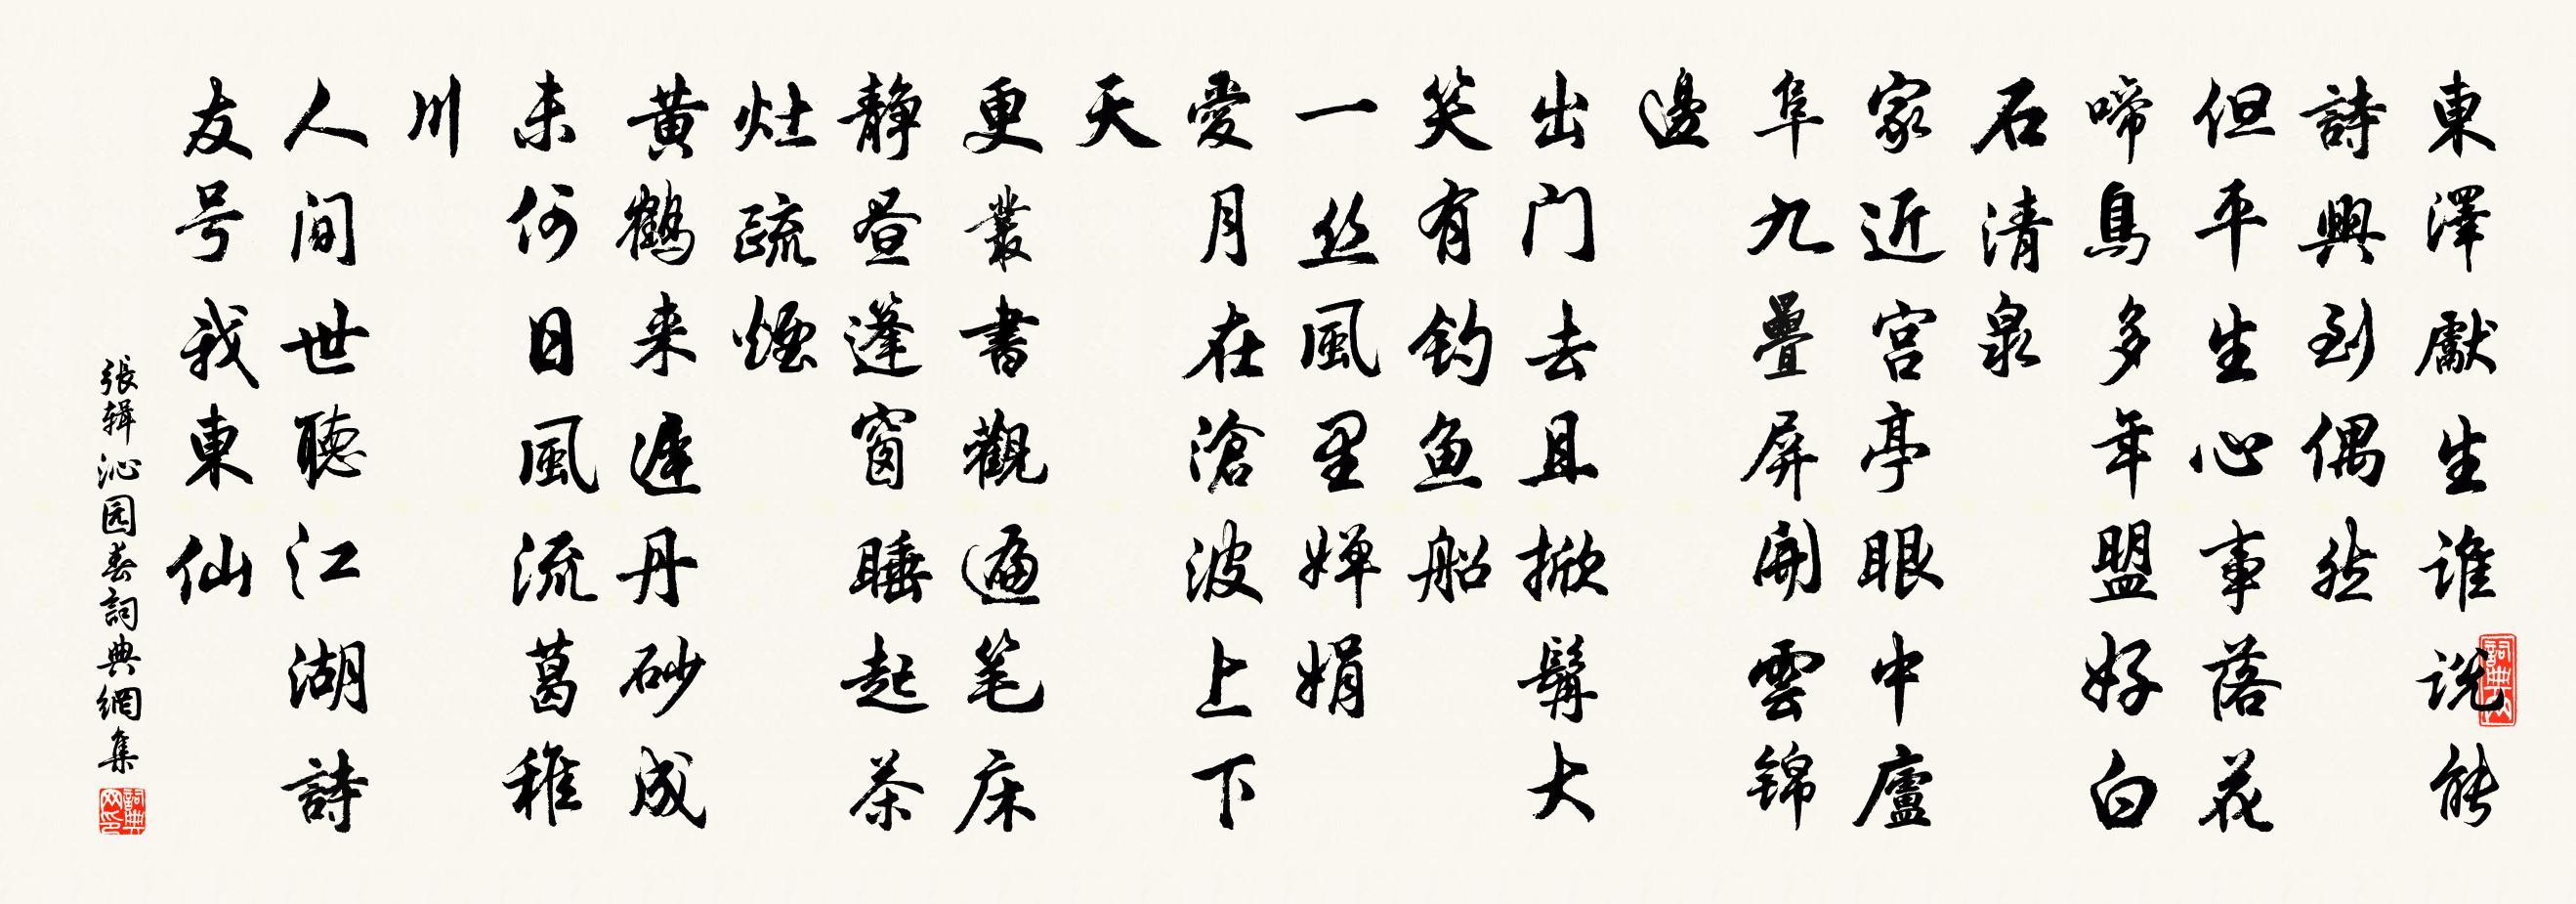 東澤獻生谁说能
詩興到偶然
但平生心事落花
啼鳥多年盟好白
石清泉
家近宫亭眼中廬
阜九疊屏開雲锦
邊
出门去且掀髯大
笑有钓鱼船
一丝風里婵娟
愛月在滄波上下
天
更叢書觀遍笔床
静昼篷窗睡起茶
灶疏煙
黄鶴来遲丹砂成
未何日風流葛稚
川
人间世聽江湖詩
友号我東仙
張辑沁园春詞典網集
詞典网
詞典网印